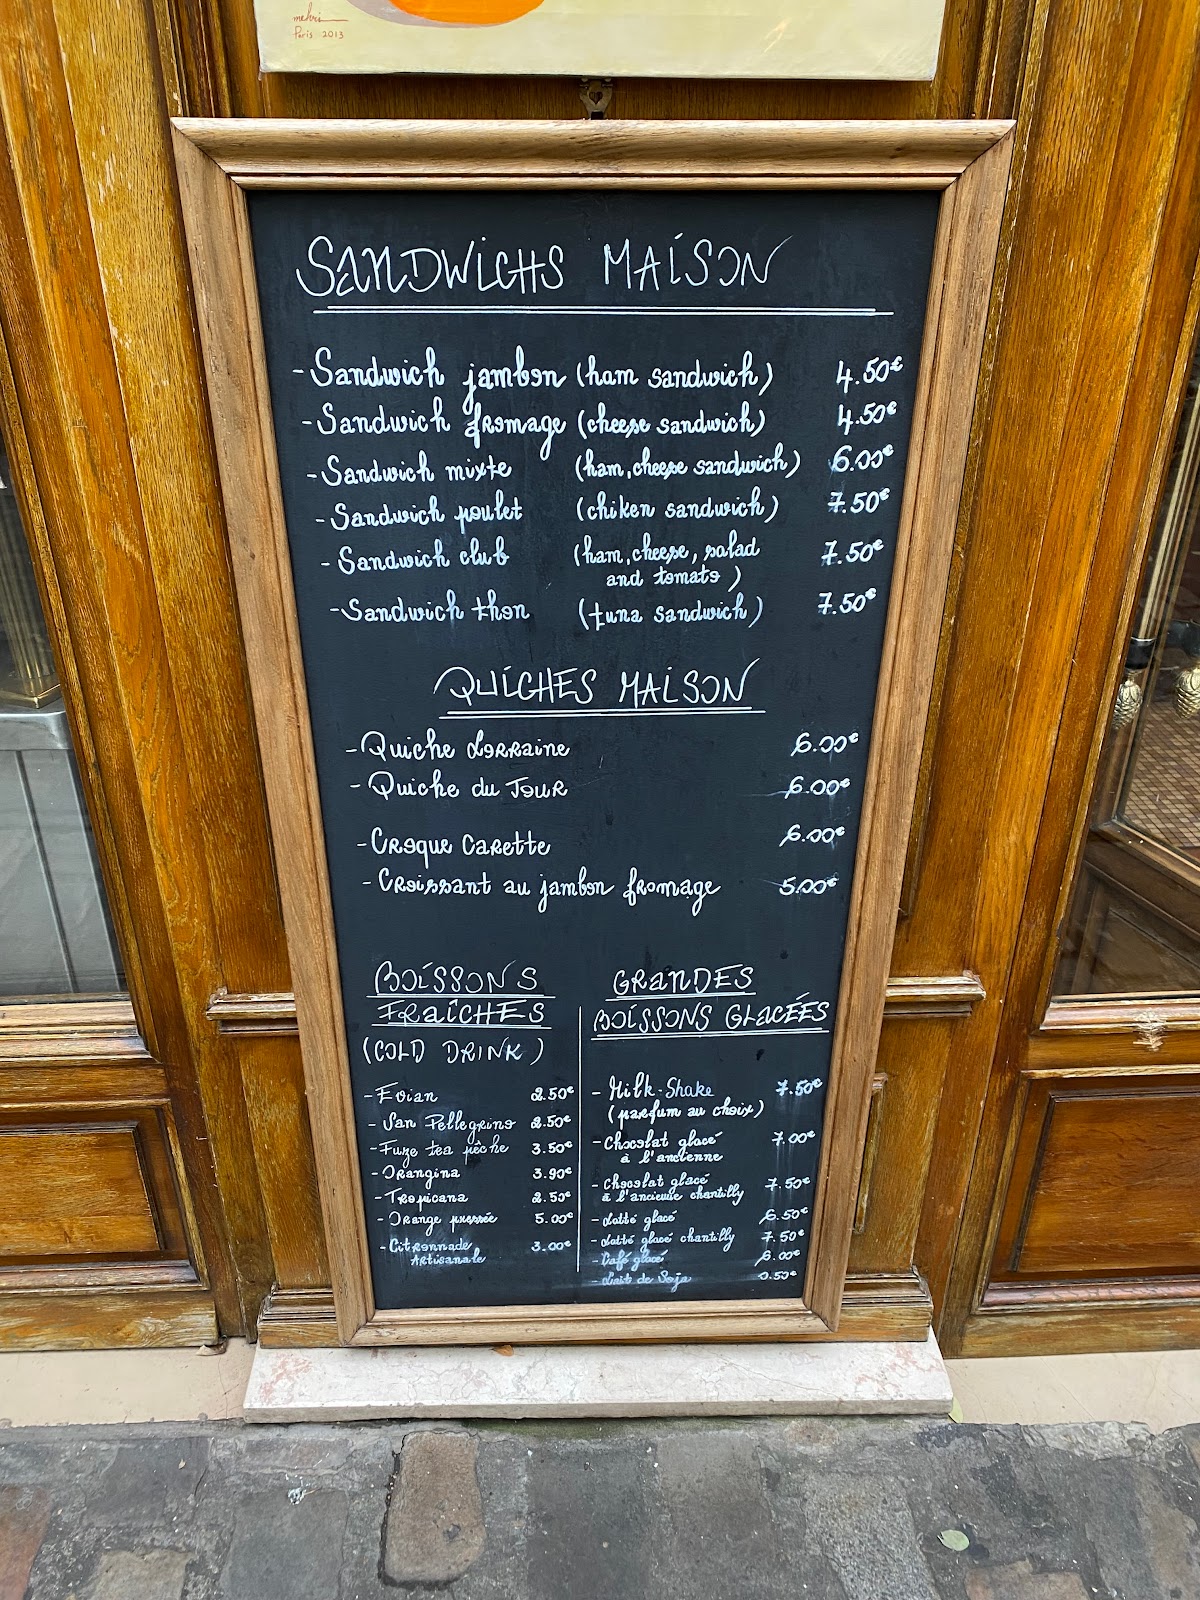 mehri
Paris 2013
SANDWICHS MAISON
- Sandwich jambon (ham sandwich) 4.50€
- Sandwich fromage (cheese sandwich) 4.50€
- Sandwich mixte (ham, cheese sandwich) 6.00€
- Sandwich poulet (chiken sandwich) 7.50€
- Sandwich club (ham, cheese, salad 7.50€
and tomato)
- Sandwich thon (tuna sandwich) 7.50€
QUICHES MAISON
- Quiche Lorraine 6.00€
- Quiche du Jour 6.00€
- Croque Carette 6.00€
- Croissant au jambon fromage 5.00€
BOISSONS
FRAÎCHES
(COLD DRINK)
- Evian 2.50€
- San Pellegrino 2.50€
- Fuze tea pêche 3.50€
- Orangina 3.90€
- Tropicana 2.50€
- Orange pressée 5.00€
- Citronnade 3.00€
Artisanale
GRANDES
BOISSONS GLACÉES
- Milk-Shake 7.50€
(parfum au choix)
- Chocolat glacé 7.00€
à l'ancienne
- Chocolat glacé 7.50€
à l'ancienne chantilly
- Latté glacé 6.50€
- Latté glacé chantilly 7.50€
- Café glacé 6.00€
- Lait de Soja 0.50€